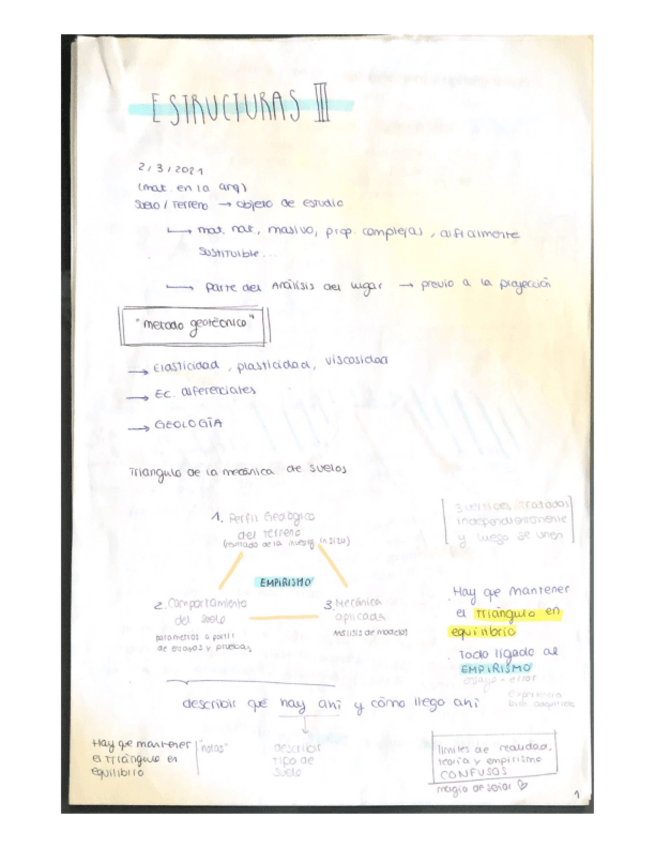 ESTRUCTURAS III
2/3/2021
(mat. en la arq)
Suelo / Terreno → objeto de estudio
↳ mat. nat, masivo, prop. complejas, difícilmente
sustituible...
→ Parte del Análisis del lugar → previo a la proyección
"metodo geotécnico"
→ Elasticidad, plasticidad, viscosidad
→ Ec. diferenciales
→ GEOLOGÍA
Triángulo de la mecánica de suelos
1. Perfil Geológico
del Terreno
(resultado de la investig. in situ)
tratados
independientemente
y luego se unen
EMPIRISMO
2. Comportamiento
del suelo
parámetros a partir
de ensayos y pruebas
3. Mecánica
aplicada
Análisis de modelos
. Hay que mantener
el triángulo en
equilibrio
. Todo ligado al
EMPIRISMO
ensayo - error
Experiencia
describir qué hay ahí y cómo llego ahí
Hay que mantener
el triángulo en
equilibrio
"notas"
describir
tipo de
suelo
límites de realidad,
teoría y empirismo
CONFUSOS
1